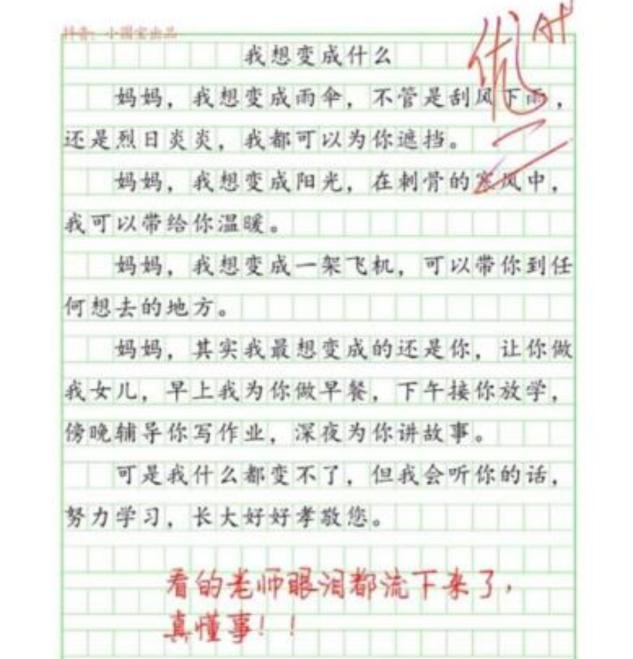 抖音：小圆宝出品
我想变成什么
优 A+
妈妈，我想变成雨伞，不管是刮风下雨，
还是烈日炎炎，我都可以为你遮挡。
妈妈，我想变成阳光，在刺骨的寒风中，
我可以带给你温暖。
妈妈，我想变成一架飞机，可以带你到任
何想去的地方。
妈妈，其实我最想变成的还是你，让你做
我女儿，早上我为你做早餐，下午接你放学，
傍晚辅导你写作业，深夜为你讲故事。
可是我什么都变不了，但我会听你的话，
努力学习，长大好好孝敬您。
看的老师眼泪都流下来了，
真懂事！！